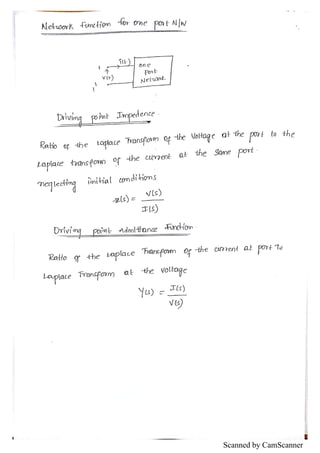 Network function for one port N/W
i(t)
+
V(t)
1
1'
one
port
Network
Driving point Impedence -
Ratio of the Laplace Transform of the Voltage at the port to the
Laplace transform of the current at the same port.
neglecting initial conditions
z(s) = V(s) / I(s)
Driving point Admittance Function
Ratio of the Laplace Transform of the current at port To
Laplace Transform at the voltage
Y(s) = I(s) / V(s)
Scanned by CamScanner